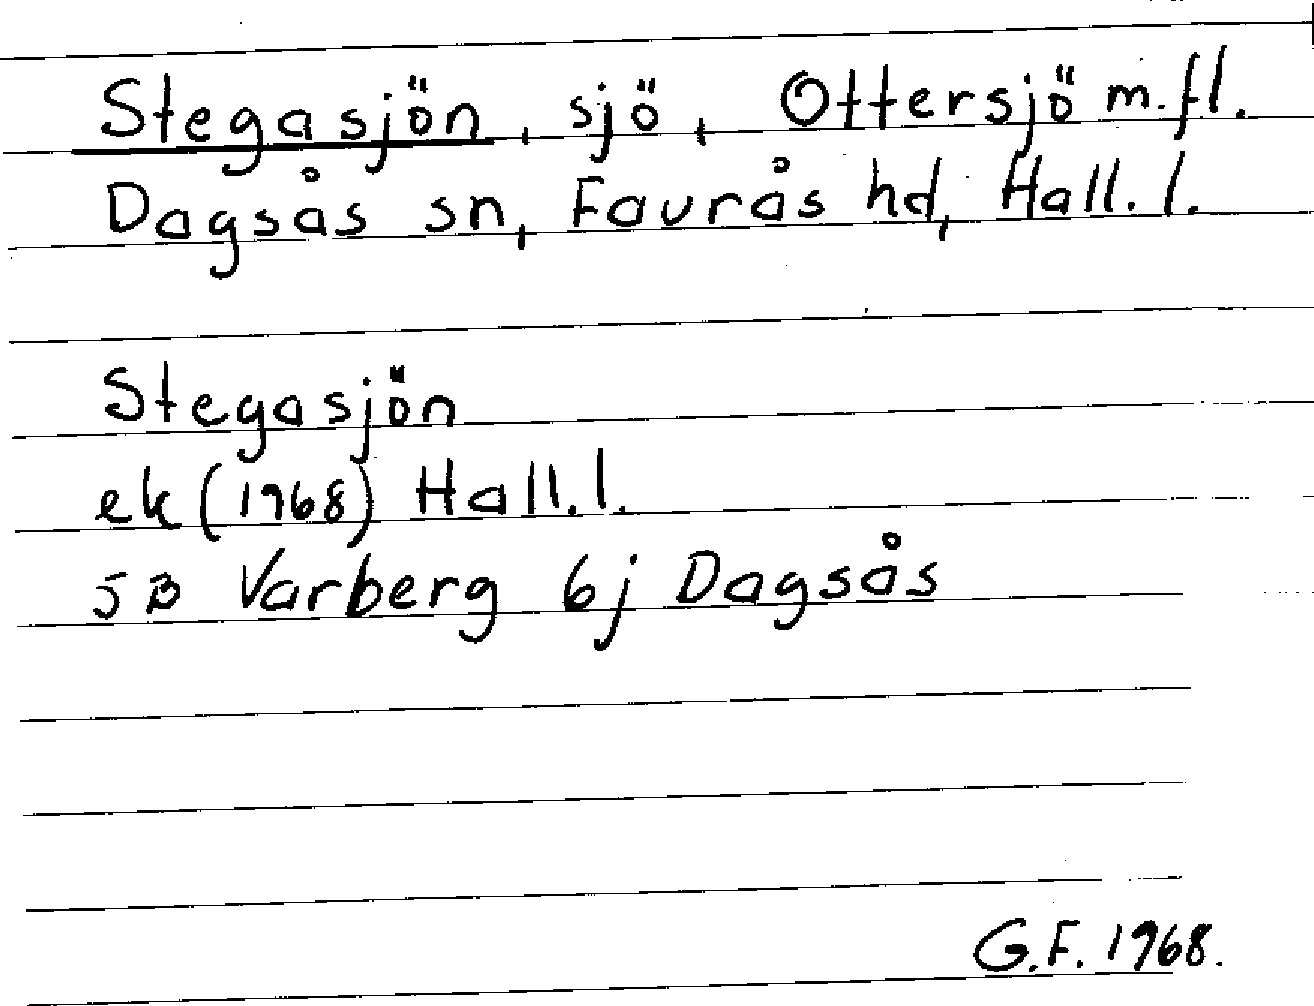 Stegasjön, sjö, Ottersjö m.fl.
Dagsås sn, Faurås hd, Hall.l.
Stegasjön
ek (1968) Hall.l.
5B Varberg 6j Dagsås
G.F. 1968.